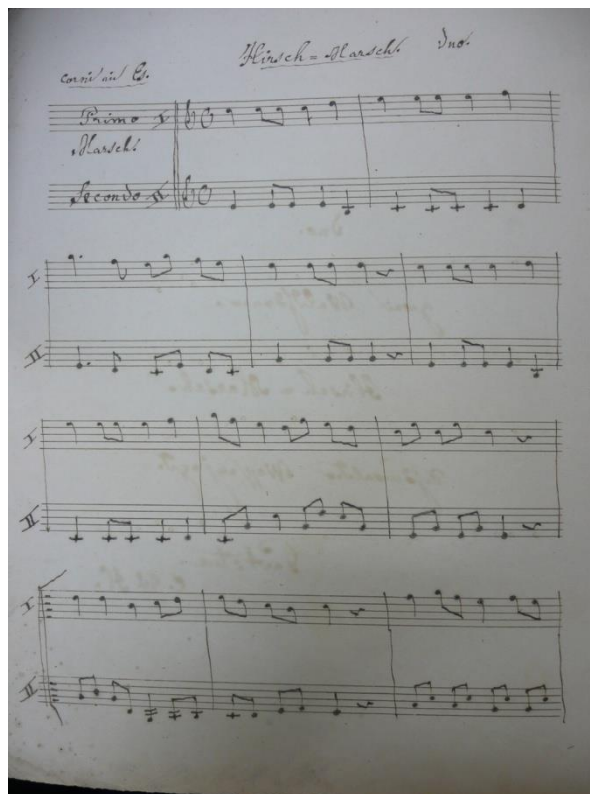 Hirsch = Marsch. Duo.
Corni in Es.
Primo I
Marsch.
Secondo II
I
II
I
II
I
II